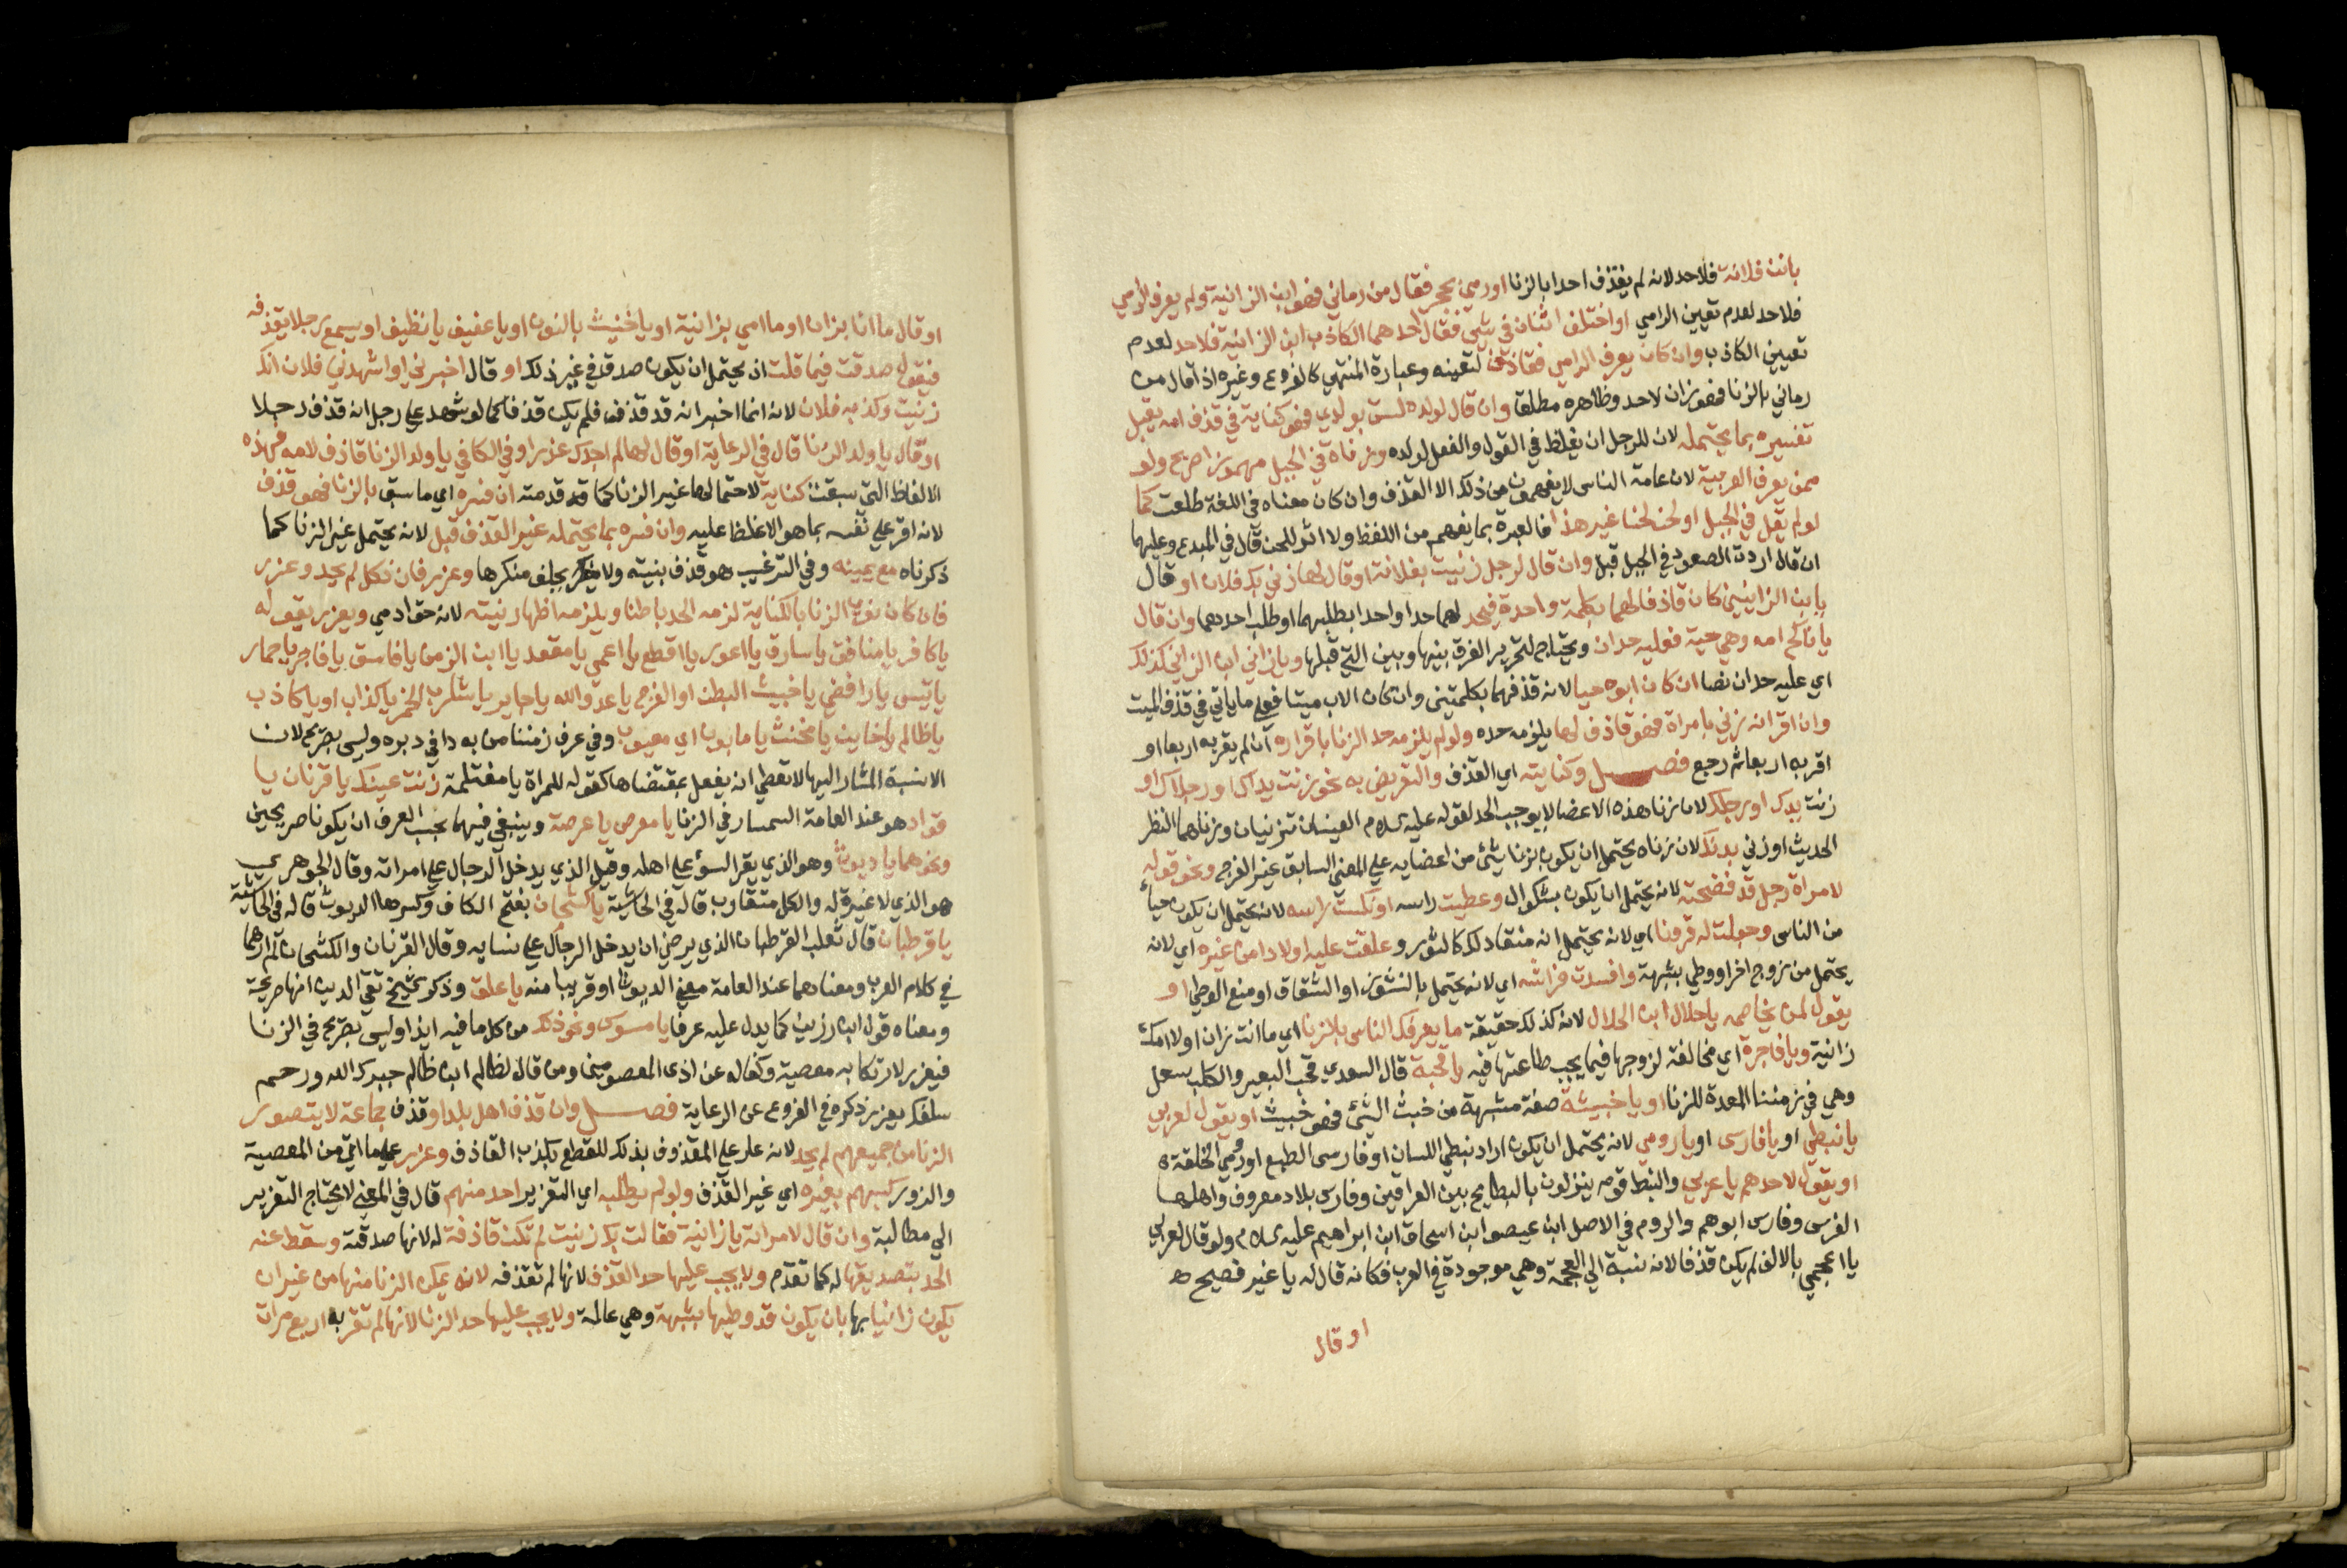 بانت فلانة فلا حد لانه لم يقذف احدا بالزنا او رمي بحجر فقال من رماني فهو ابن الزانية ولم يعرف الرامي
فلا حد لعدم تعيين الرامي او اختلف اثنان في شي فقال احدهما الكاذب ابن الزانية فلا حد لعدم
تعيين الكاذب وان كان يعرف الرامي فقاذف لتعينه وعبارة المنتهي كالفروع وغيره اذا قال من
رماني بالزنا فهو زان لاحد وظاهره مطلقا وان قال لولده لست بولدي فهو كناية في قذف امه يقبل
تفسيره بما يحتمله لان للرجل ان يغلظ في القول والفعل لولده وزناة في الجبل مهموز اصريح ولو
ممن يعرف العربية لان عامة الناس لا يفهمون من ذلك الا القذف وان كان معناه في اللغة طلعت كما
لو لم يقل في الجبل او لحن لحنا غير هذا فالعبرة بما يفهم من اللفظ ولا اثر للحن قال في المبدع وعليهما
ان قال اردت الصعود في الجبل قبل وان قال لرجل زنيت بفلانة او قال لها زني بك فلان او قال
يا ابن الزانيين كان قاذفا لهما بكلمة واحدة فيحد لهما حدا واحدا بطلبهما او طلب احدهما وان قال
يا ناكح امه وهي حية فعليه حدان ويحتاج لتحرير الفرق بينها وبين التي قبلها ويا زاني ابن الزاني كذلك
اي عليه حدان نصا ان كان ابوه حيا لانه قذفهما بكلمتين وان كان الاب ميتا فعلي ما ياتي في قذف الميت
وان اقر انه زني بامراة فهو قاذف لها يلزمه حده ولو لم يلزمه حد الزنا باقراره ان لم يقر به اربعا او
اقر به اربعا ثم رجع فصل وكنايته اي القذف والتعريض به نحو زنت يداك او رجلاك او
زنت يدك او رجلك لان زنا هذه الاعضا لا يوجب الحد لقوله عليه السلام العينان تزنيان وزناهما النظر
الحديث او زني بدنك لان زناه يحتمل ان يكون بزنا شئ من اعضايه علي المعني السابق غير الفرج ونحو قوله
لامراة رجل قد فضحته لانه يحتمل ان يكون بشكوال وغطيت راسه او نكست راسه لانه يحتمل ان يكون حياً
من الناس وجعلت له قرونا اي لانه يحتمل انه منقاد لك كالثور وعلقت عليه اولادا من غيره اي لانه
يحتمل من زوج اخر او وطي بشبهة وافسدت فراشه اي لانه يحتمل بالنشوز او الشقاق او منع الوطي او
يقول لمن يخاصمه يا حلال ابن الحلال لانه كذلك حقيقة ما يعرفك الناس بالزنا اي ما انت بزان او لا امك
زانية ويا فاجرة اي مخالفة لزوجها فيما يجب طاعتها فيه يا قحبة قال السعدي قحب البعير والكلب سعل
وهي في زمننا المعدة للزنا او يا خبيثة صفة مشبهة من خبث الشئ فهو خبيث او يقول لعربي
يا نبطي او يا فارسي او يا رومي لانه يحتمل ان يكون اراد نبطي اللسان او فارسي الطبع او رومي الخلقة
او يقول لاحدهم يا عربي والنبط قوم ينزلون بالبطايح بين العراقين وفارس بلاد معروف واهلها
الفرس وفارس ابوهم والروم في الاصل ابن عيصو ابن اسحاق ابن ابراهيم عليه السلام ولو قال لعربي
يا اعجمي بالالف لم يكن قذفا لانه نسبة الي العجمة وهي موجودة في العرب فكانه قال له يا غير فصيح
او قال
او قال ما انا بزان او ما امي بزانية او يا خنيث بالنون او يا عفيف يا نظيف او يسمع رجلا يقذفه
فيقول صدقت فيما قلت اذ يحتمل ان يكون صدقه في غير ذلك او قال اخبرني او اشهدني فلان انك
زنيت وكذبه فلان لانه انما اخبر انه قد قذف فلم يكن قذفا كما لو شهد علي رجل انه قذف رجلا
او قال يا ولد الزنا قال في الرعاية او قال لها لم اجدك عذرا وفي الكافي يا ولد الزنا قاذف لامه فهذه
الالفاظ التي سبقت كناية لاحتمالها غير الزنا كما قد قدمته ان فسره اي ما سبق بالزنا فهو قذف
لانه اقر علي نفسه بما هو الاغلظ عليه وان فسره بما يحتمله غير القذف قبل لانه يحتمل غير الزنا كما
ذكرناه مع يمينه وفي الترغيب هو قذف بنيته ولا يحلف منكرها وعزر فان نكل لم يحد وعزر
فان كان نوي الزنا بالكناية لزمه الحد باطنا ويلزمه اظهار نيته لانه حق ادمي ويعزر بقوله
يا كافر يا منافق يا سارق يا اعور يا اقطع يا اعمي يا مقعد يا ابن الزمن يا فاسق يا فاجر يا حمار
يا تيس يا رافضي يا خبيث البطن او الفرج يا عدو الله يا جاير يا شارب الخمر يا كذاب او يا كاذب
يا ظالم يا خاين يا مخنث يا مابون اي معيوب وفي عرف زمننا من به داء في دبره وليس بصريح لان
الابنة المشار اليها لا تعطي ان يفعل بمقتضاها كقوله للمراة يا مغتلمة زنت عينك يا قرنان يا
قواد هو عند العامة السمسار في الزنا يا معرص يا عرصة وينبغي فيهما بحسب العرف ان يكونا صريحين
ونحوهما يا ديوث وهو الذي يقر السوء علي اهله وقيل الذي يدخل الرجال علي امراته وقال الجوهري
هو الذي لا غيرة له والكل متقارب قاله في الحاشية يا كشخان بفتح الكاف وكسرها الديوث قاله في الحاشية
يا قرطبان قال ثعلب القرطبان الذي يرضي ان يدخل الرجال علي نسايه وقال القرنان والكشخان لم ارهما
في كلام العرب ومعناهما عند العامة معني الديوث او قريبا منه يا علق وذكر الشيخ تقي الدين انها صريحة
ومعناه قول ابن رزين كما يدل عليه عرفا يا مسوس ونحو ذلك من كل ما فيه ايذا وليس بصريح في الزنا
فيعزر لارتكابه معصية وكفاله عن اذي المعصومين ومن قال لظالم ابن ظالم جبرك الله ورحم
سلفك يعزر ذكره في الفروع عن الرعاية فصل وان قذف اهل بلد او قذف جماعة لا يتصور
الزنا من جميعهم لم يحد لانه عار علي المقذوف بذلك للقطع بكذب القاذف وعزر علي ما اتي من المعصية
والزور كسبهم بغيره اي غير القذف ولو لم يطلبه اي التعزير احد منهم قال في المغني لا يحتاج التعزير
الي مطالبة وان قال لامراته يا زانية فقالت بك زنيت لم تكن قاذفة له لانها صدقته وسقط عنه
الحد بتصديقها له كما تقدم ولا يجب عليها حد القذف لانها لم تقذفه لانه يمكن الزنا منها من غير ان
يكون زانيا بها بان يكون قد وطيها بشبهة وهي عالمة ولا يجب عليها حد الزنا لانها لم تقر به اربع مرات